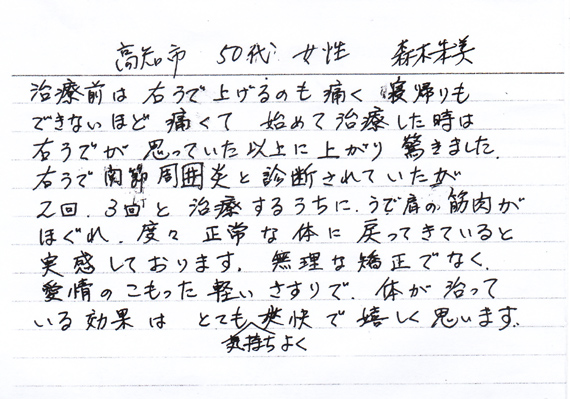 高知市 50代 女性 森木朱美
治療前は右うで上げるのも痛く寝帰りも
できないほど痛くて 始めて治療した時は
右うでが思っていた以上に上がり驚きました。
右うで関節周囲炎と診断されていたが
2回、3回と治療するうちに、うで肩の筋肉が
ほぐれ、度々正常な体に戻ってきていると
実感しております。無理な矯正でなく、
愛情のこもった軽いさすりで、体が治って
いる効果は とても爽快で嬉しく思います。
気持ちよく